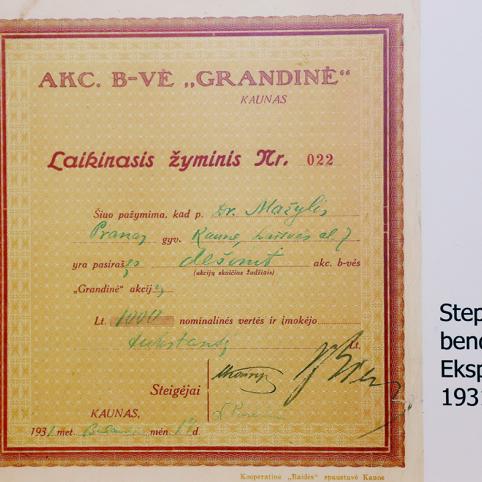 AKC. B-VĖ „GRANDINĖ“
KAUNAS
Laikinasis žyminis Nr. 022
Šiuo pažymima, kad p. Dr. Mažylis
Pranas gyv. Kaune, Laisvės al. 7
yra pasirašęs dešimt akc. b-vės
(akcijų skaičius žodžiais)
„Grandinė“ akcijų
Lt. 1000 nominalinės vertės ir įmokėjo
tūkstantį Lt.
Steigėjai
KAUNAS,
1931 met. mėn. d.
Kooperatino „Raidės“ spaustuvė Kaune
Step
bend
Eksp
193